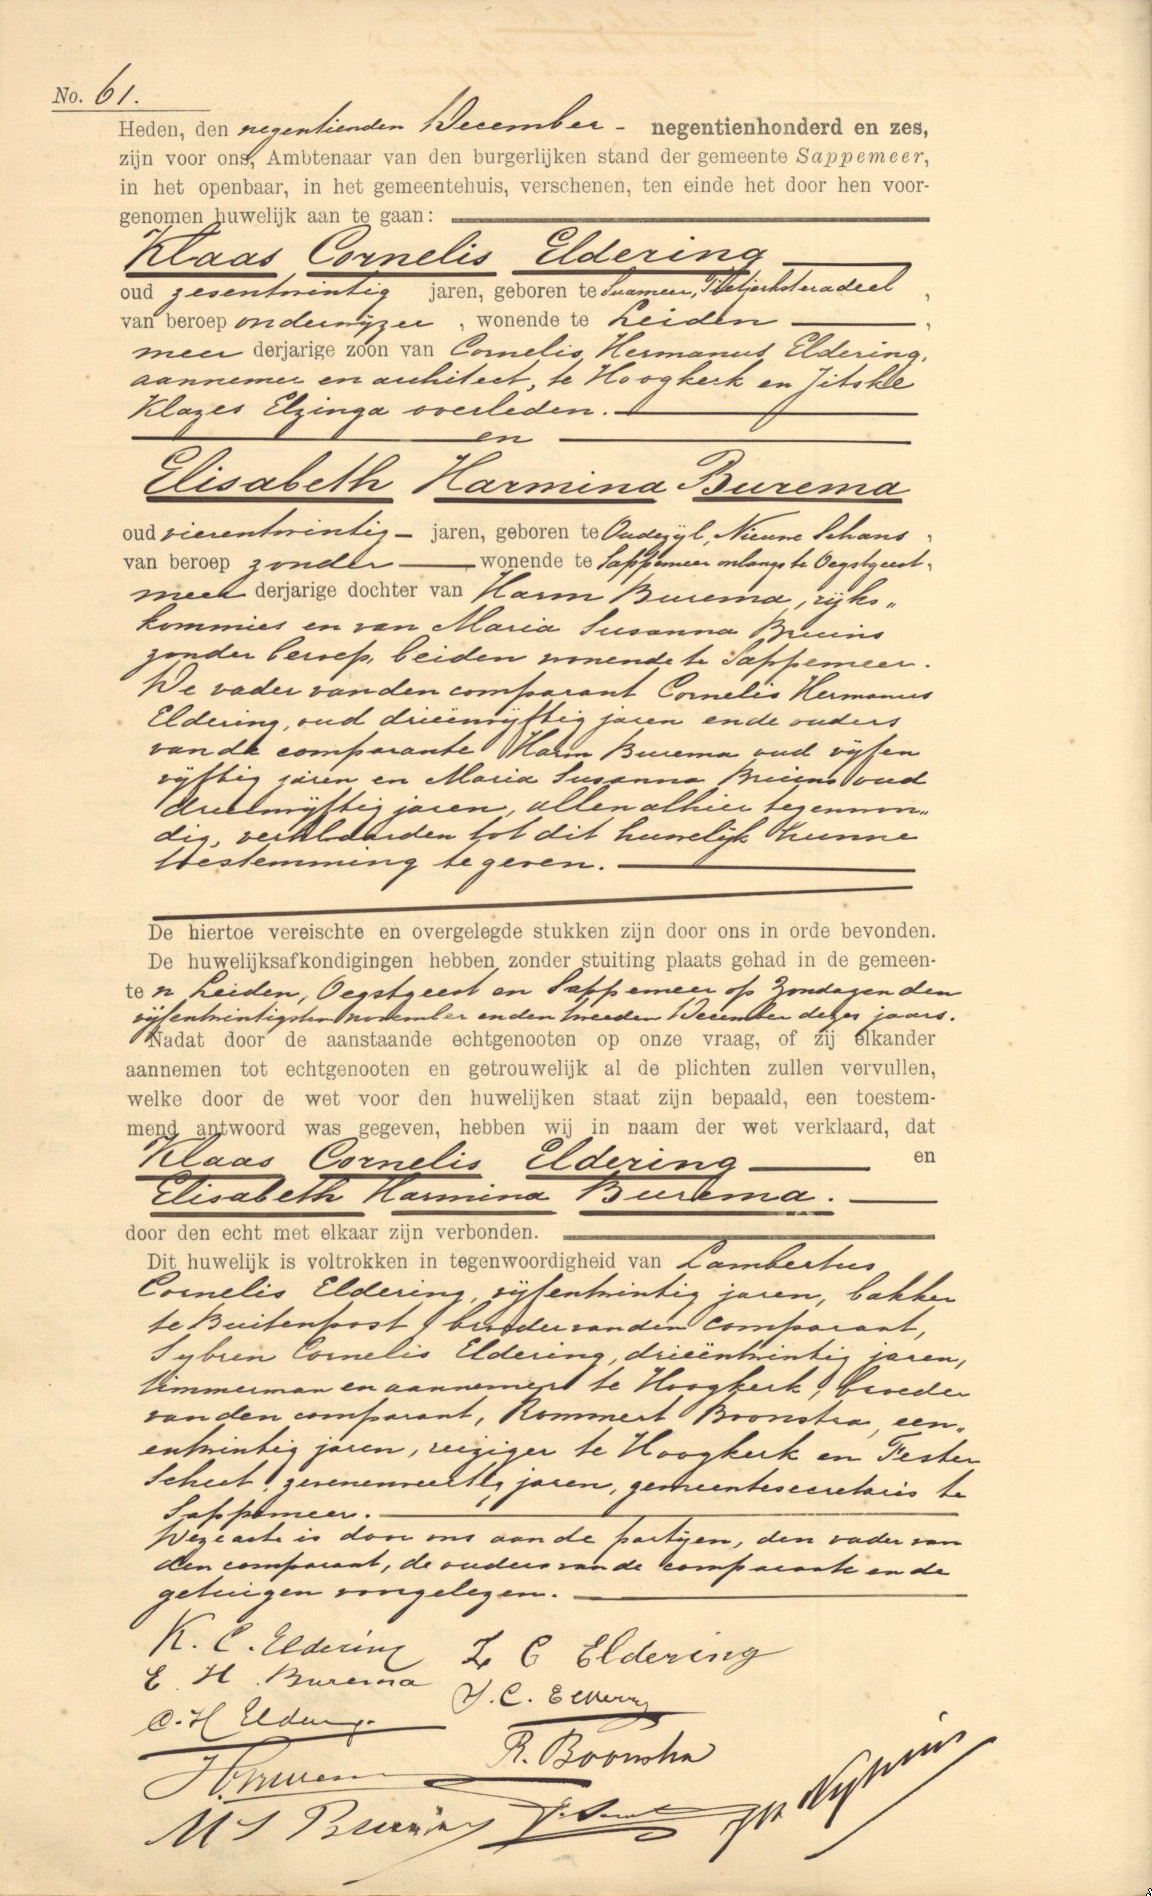 No. 61.
Heden, den negentienden December - negentienhonderd en zes,
zijn voor ons, Ambtenaar van den burgerlijken stand der gemeente Sappemeer,
in het openbaar, in het gemeentehuis, verschenen, ten einde het door hen voor-
genomen huwelijk aan te gaan:
Klaas Cornelis Eldering
oud zesentwintig jaren, geboren te Suameer, Tietjerksteradeel,
van beroep onderwijzer, wonende te Leiden,
meer derjarige zoon van Cornelis Hermanus Eldering,
aannemer en architect, te Hoogkerk en Jitske
Klazes Elzinga overleden.
en
Elisabeth Harmina Burema
oud vierentwintig - jaren, geboren te Oudezijl, Nieuwe Schans,
van beroep zonder wonende te Sappemeer onlangs te Oegstgeest,
meer derjarige dochter van Harm Burema, rijks„
kommies en van Maria Susanna Bruins
zonder beroep, beiden wonende te Sappemeer.
De vader van den comparant Cornelis Hermanus
Eldering, oud drieënvijftig jaren en de ouders
van de comparante Harm Burema oud vijfen
vijftig jaren en Maria Susanna Bruins oud
drieënvijftig jaren, allen alhier tegenwoor„
dig, verklaarden tot dit huwelijk hunne
toestemming te geven.
De hiertoe vereischte en overgelegde stukken zijn door ons in orde bevonden.
De huwelijksafkondigingen hebben zonder stuiting plaats gehad in de gemeen-
te n Leiden, Oegstgeest en Sappemeer op Zondagen den
vijfentwintigsten november en den tweeden December dezes jaars.
Nadat door de aanstaande echtgenooten op onze vraag, of zij elkander
aannemen tot echtgenooten en getrouwelijk al de plichten zullen vervullen,
welke door de wet voor den huwelijken staat zijn bepaald, een toestem-
mend antwoord was gegeven, hebben wij in naam der wet verklaard, dat
Klaas Cornelis Eldering en
Elisabeth Harmina Burema.
door den echt met elkaar zijn verbonden.
Dit huwelijk is voltrokken in tegenwoordigheid van Lambertus
Cornelis Eldering, vijfentwintig jaren, bakker
te Buitenpost, broeder van den comparant,
Sybren Cornelis Eldering, drieëntwintig jaren,
timmerman en aannemer te Hoogkerk, broeder
van den comparant, Rommert Boonstra, een„
entwintig jaren, reiziger te Hoogkerk en Fester
jaren, gemeentesecretaris te
Sappemeer.
Deze acte is door ons aan de partijen, den vader van
den comparant, de ouders van de comparante en de
getuigen voorgelezen.
K. C. Eldering
L C Eldering
E. H. Burema
S. C. Eldering
C. H Eldering
R. Boonstra
HBurema
M S Bruins